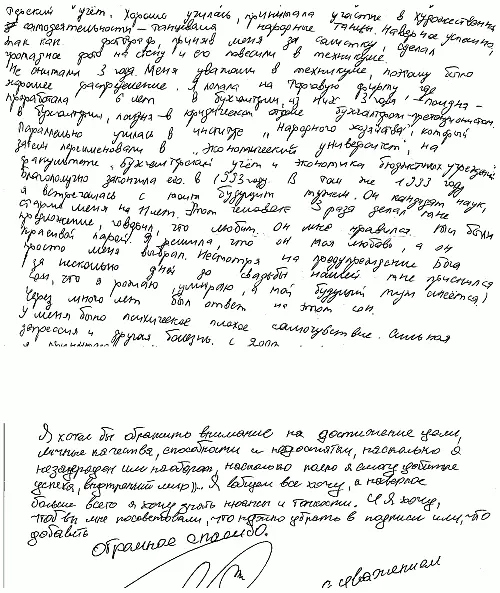 терский учёт. Хорошо училась, принимала участие в художественной
самодеятельности – танцевала народные танцы. Наверное успешно,
так как фотограф, приняв меня за солистку, сделал
фото на сцену и его повесили в техникуме.
Не считали 3 года. Меня уважали в техникуме, поэтому было
хорошее распределение. Я попала на торговую фирму, где
проработала 6 лет в бухгалтерии, из них 3 года –
в бухгалтерии, в юридическом отделе бухгалтером-претензионистом.
Параллельно училась в институте "Народного хозяйства", который
затем переименовали в "Экономический университет", на
факультете "Бухгалтерский учёт и экономика бюджетных учреждений"
благополучно закончила его в 1999 году. В том же 1999 году
я встречалась с моим будущим мужем. Он кандидат наук,
старше меня на 11 лет. Этот человек 3 раза делал мне
предложение, говорил, что любит. Он мне нравился. Мы были
красивой парой. Я решила, что он моя любовь, а он
просто меня выбрал. Несмотря на предупреждение Бога
(за несколько дней до свадьбы нашей мне приснился
сон, что я рожаю, умираю, а мой будущий муж смеётся)
Через много лет был ответ на этот сон.
У меня было психическое плохое самочувствие. Сильная
депрессия и другая болезнь. С
Я хотел бы обратить внимание на достижение цели,
личные качества, способности и недостатки, насколько я
незауряден или наоборот, насколько полно я смогу добиться
успеха, внутренний мир)... Я вобщем все хочу, а наверное
больше всего я хочу узнать нюансы и тонкости. И Я хочу,
чтоб вы мне посоветовали, что нужно убрать в подписи или, что
добавить
огромное спасибо.
с уважением